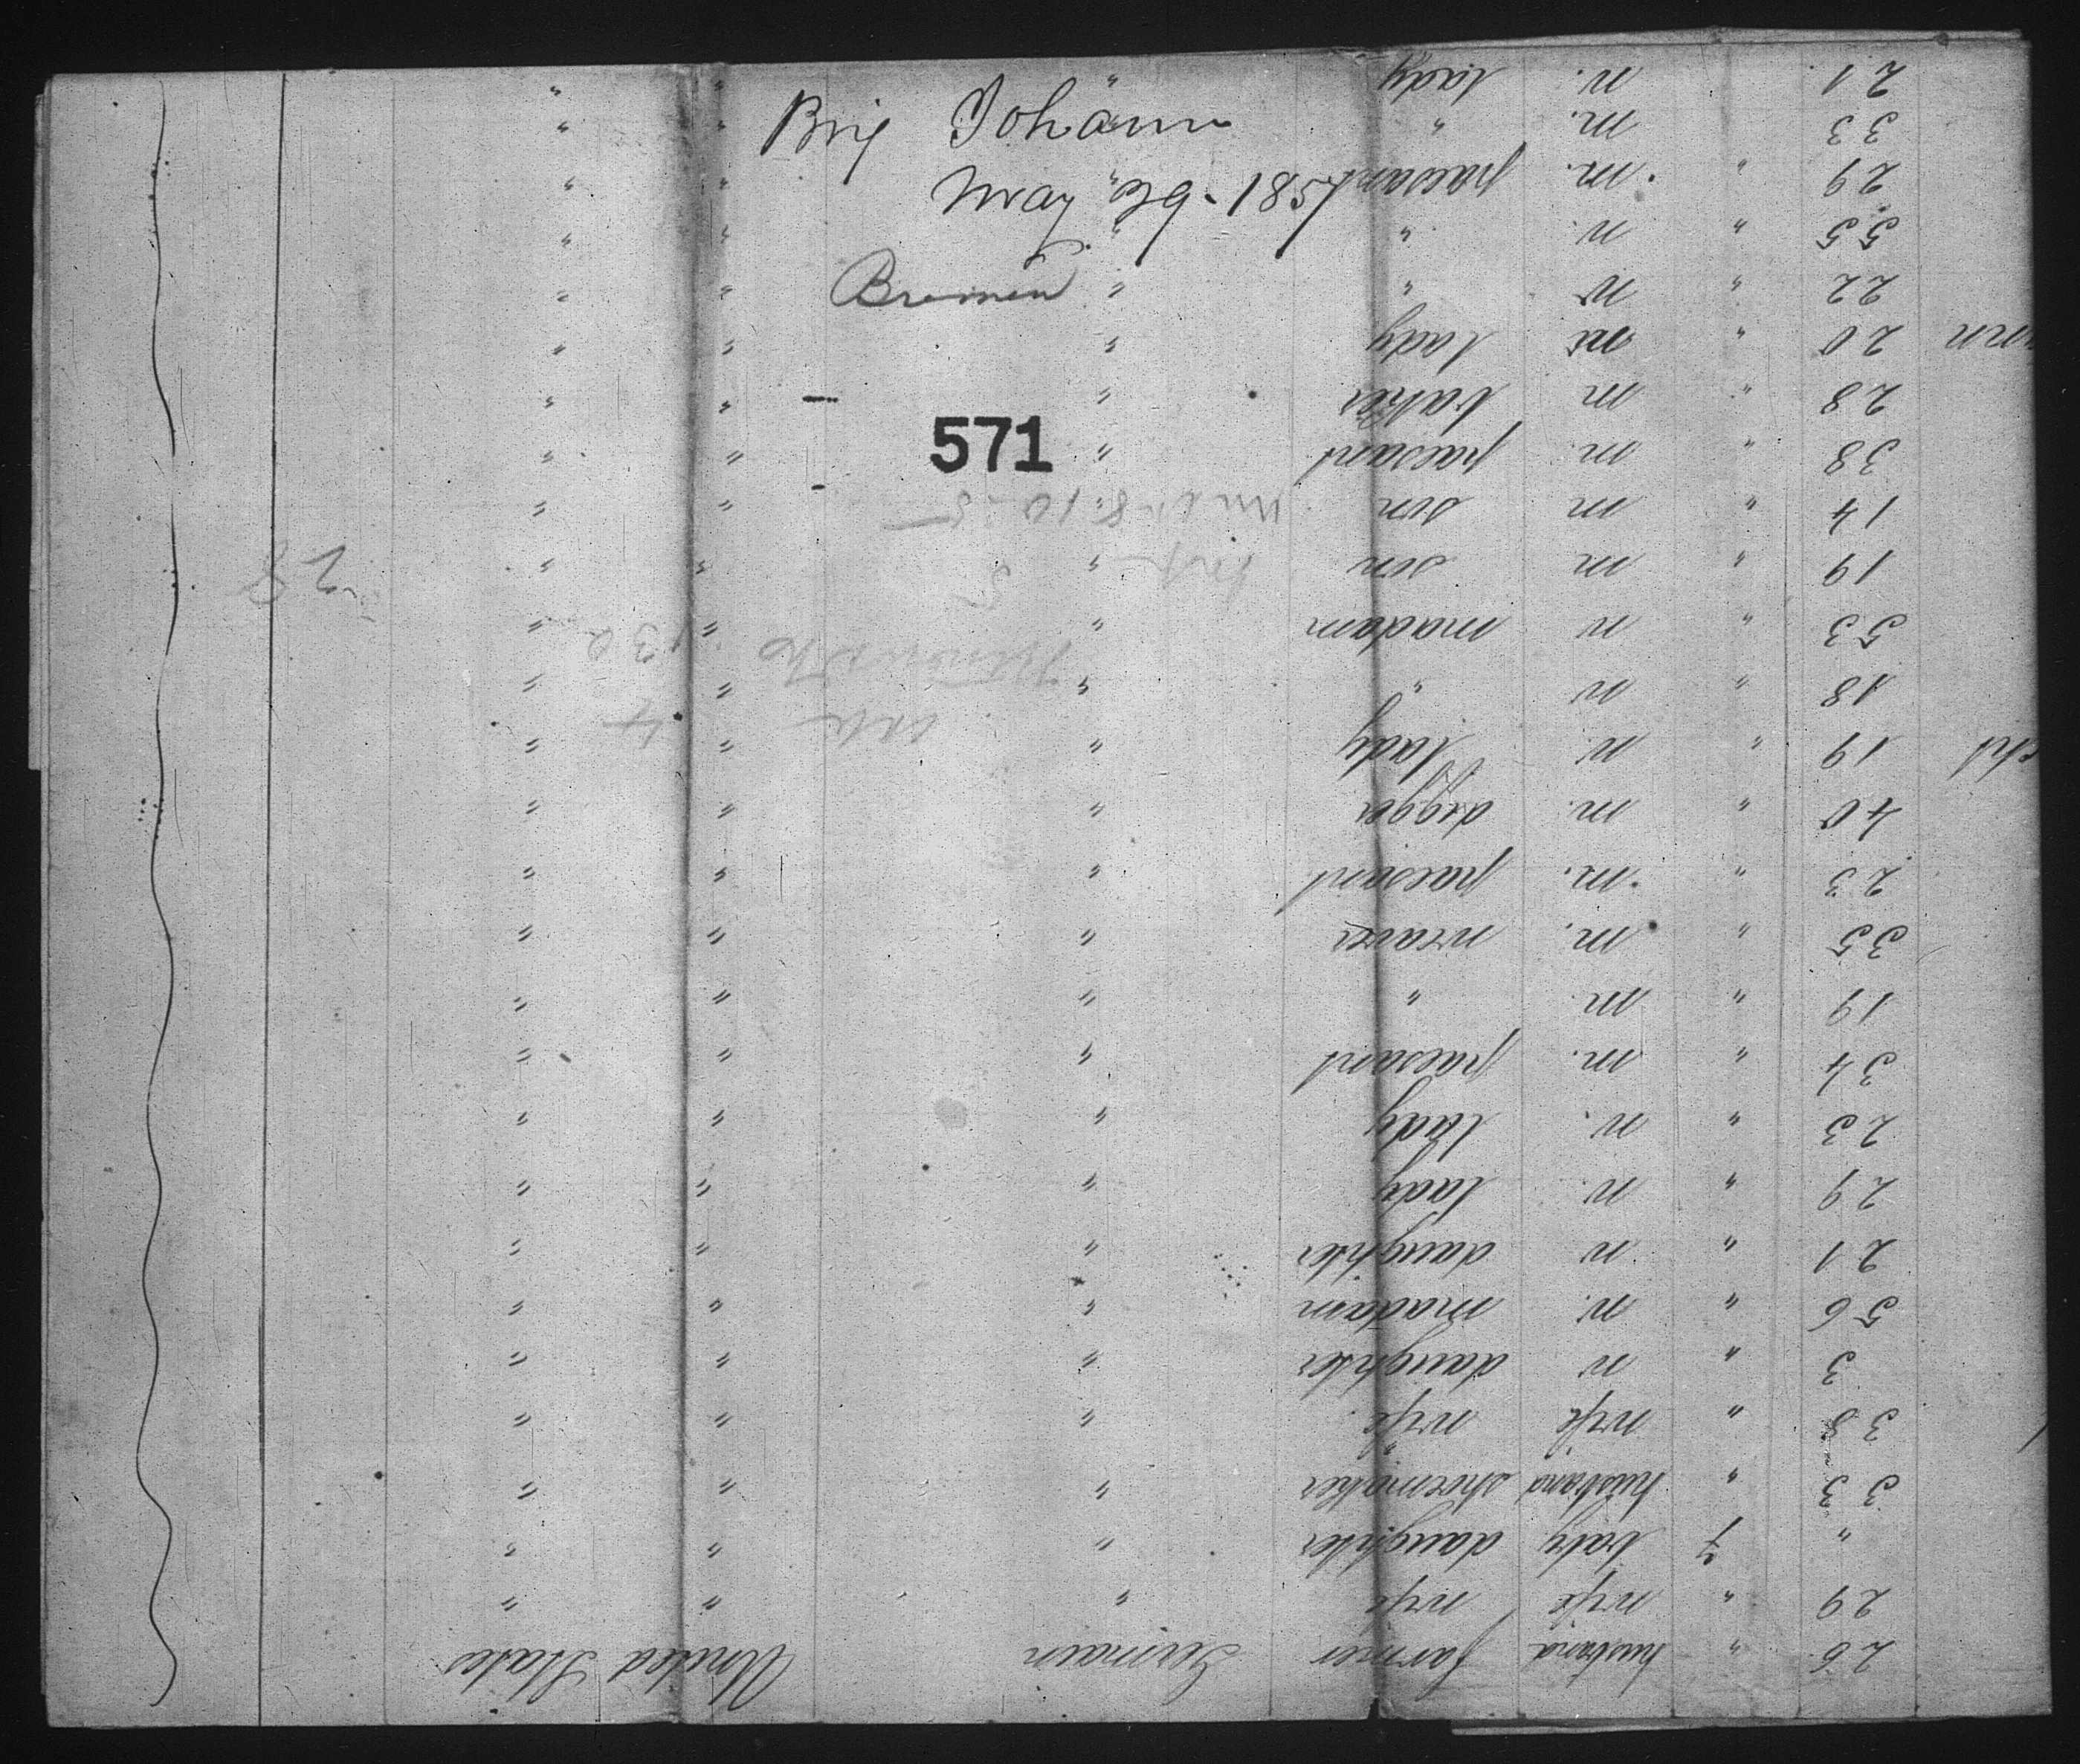 Brig Johann
May 29-1851
Bremen
571
26 " husband farmer German United States
29 " wife wife " " "
" 7 baby daughter " " "
33 " husband shoemaker " " "
38 " wife wife " " "
3 " w daughter " " "
56 " w. madam " " "
21 " w daughter " " "
29 " w. lady " " "
23 " w. lady " " "
34 " m. paesant " " "
19 " m " " " "
35 " m. weaver " " "
23 " m. paesant " " "
40 " m. digger " " "
19 " w. lady " " "
18 " w " " " "
53 " w madam " " "
19 " m son " " "
14 " m son " " "
38 " m. paesant " " "
28 " m baker " " "
20 " w lady " " "
22 " w " " " "
55 " w. " " " "
29 " m. paesant " " "
33 m. " " " "
21 w. lady " " "
28